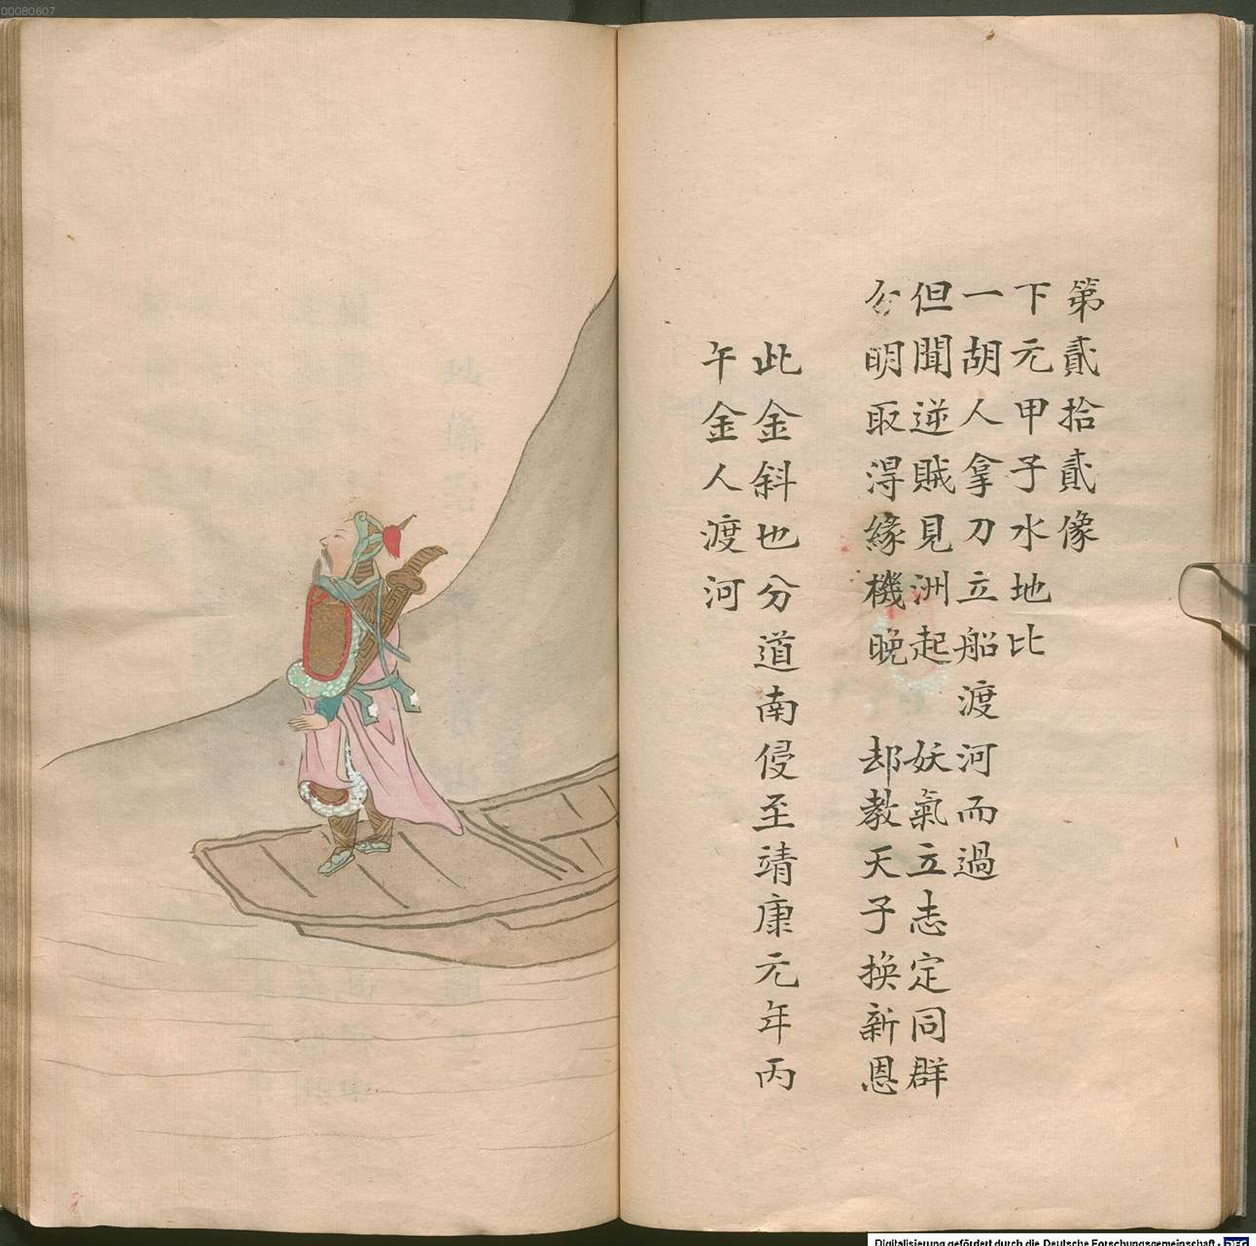 第貳拾貳像
下元甲子水地比
一胡人拿刀立船渡河而過
但聞逆賊見洲起　妖氣立志定同群
分明取得緣機晚　却教天子換新恩
此金斜也分道南侵至靖康元年丙
午金人渡河
00080607
Digitalisierung gefördert durch die Deutsche Forschungsgemeinschaft - DFG